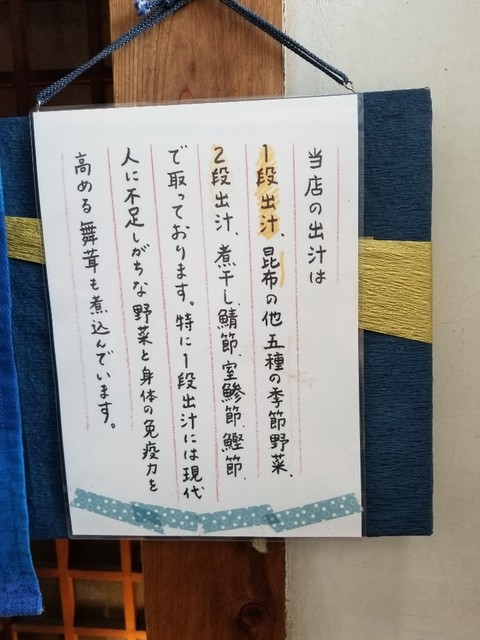 当店の出汁は
1段出汁、昆布の他五種の季節野菜、
2段出汁、煮干し、鯖節、室鯵節、鰹節、
で取っております。特に1段出汁には現代
人に不足しがちな野菜と身体の免疫力を
高める舞茸も煮込んでいます。